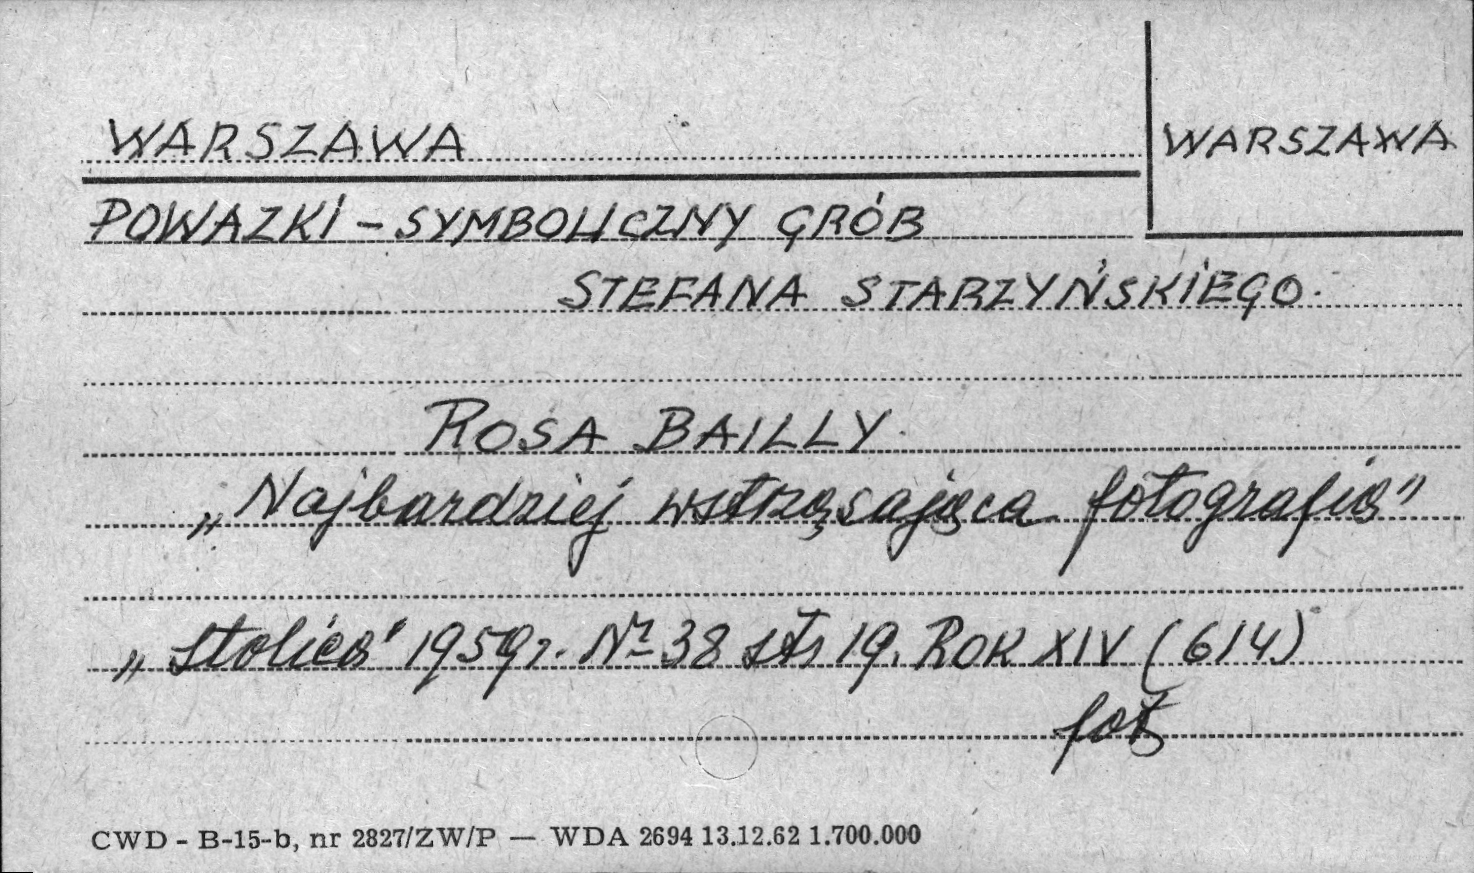 WARSZAWA
WARSZAWA
POWAZKI - SYMBOLICZNY GRÓB
STEFANA STARZYŃSKIEGO.
ROSA BAILLY.
„Najbardziej wstrząsająca fotografia"
„Stolica" 1959 r. Nr 38 str 19. ROK XIV (614)
fot
CWD - B-15-b, nr 2827/ZW/P — WDA 2694 13.12.62 1.700.000